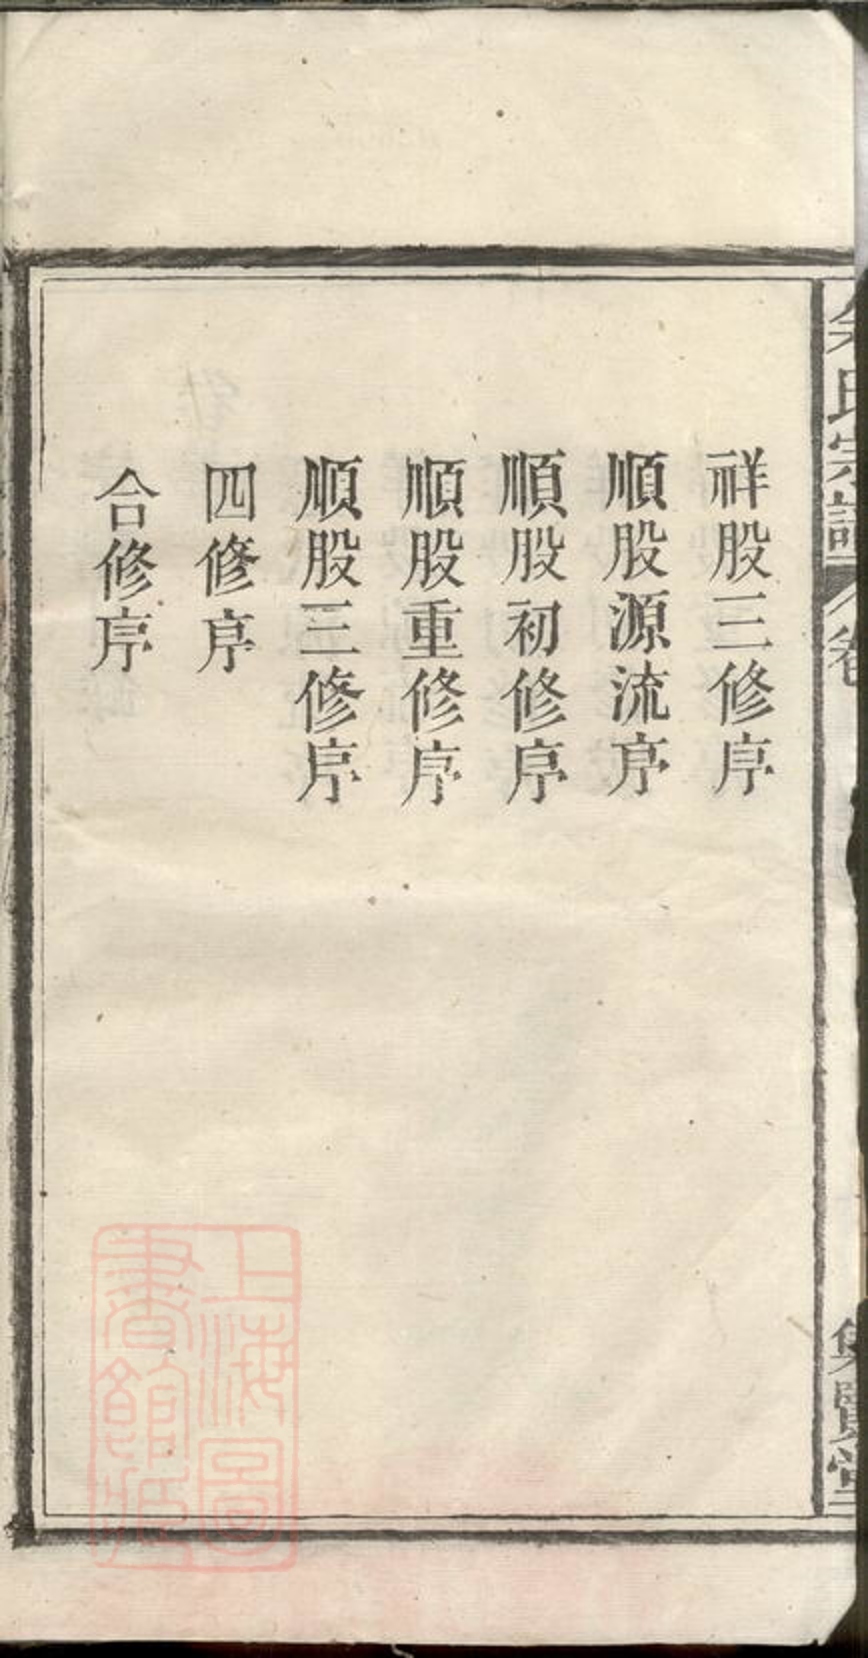 祥股三修序
順股源流序
順股初修序
順股重修序
順股三修序
四修序
合修序
氏宗譜
卷
集賢堂
上海圖
書館藏